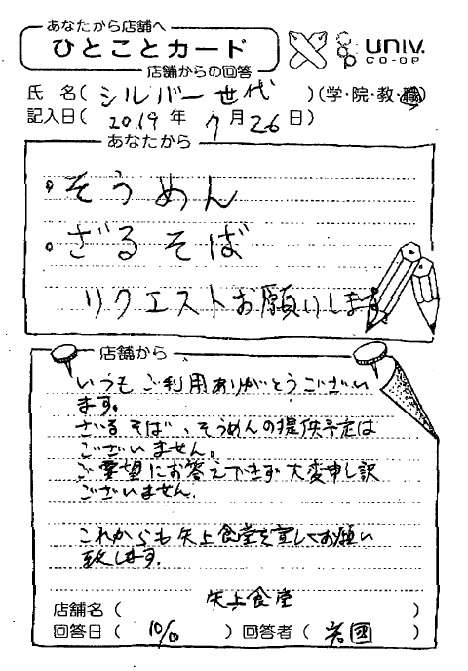 あなたから店舗へ
ひとことカード
店舗からの回答
UNIV.
CO-OP
氏 名( シルバー世代 )(学・院・教・職)
記入日( 2019 年 7 月 26 日)
あなたから
・そうめん
・ざるそば
リクエストお願いします
店舗から
いつもご利用ありがとうござい
ます。
ざるそば、そうめんの提供予定は
ございません。
ご要望にお答えできず大変申し訳
ございません.
これからも矢上食堂を宜しくお願い
致します.
店舗名( 矢上食堂 )
回答日( )回答者( 岩國 )